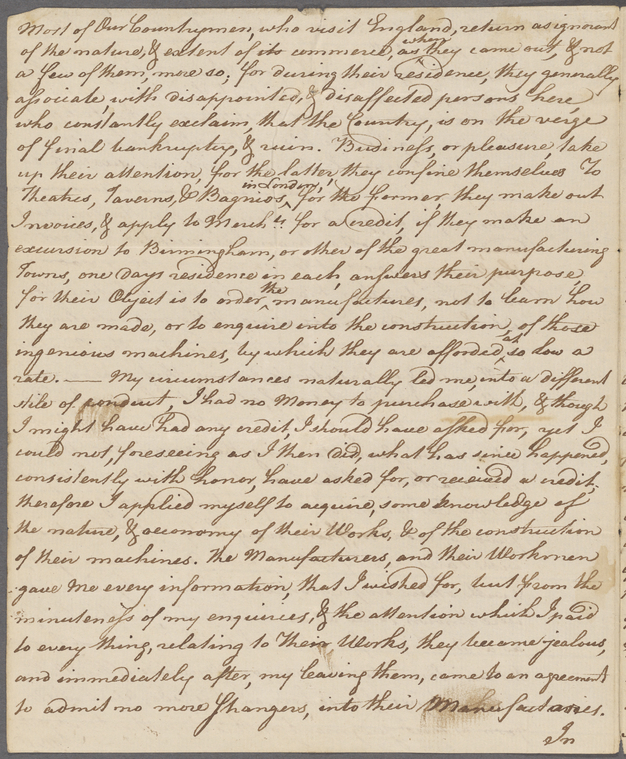 Most of Our Countrymen, who visit England, return as ignorant
of the nature, & extent of its commerce, as when they came out, & not
a few of them, more so; for during their residence, they generally
associate with disappointed, & disaffected persons here,
who constantly exclaim, that the Country, is on the verge
of final bankruptcy, & ruin. Business, or pleasure, take
up their attention, for the latter they confine themselves To
Theatres, Taverns, & Bagnios in London, for the former they make out
Invoices, & apply to Merchts. for a credit, if they make an
excursion to Birmingham, or other of the great manufacturing
Towns, one Days residence in each, answers their purpose,
for their Object is to order the manufactures, not to learn how
they are made, or to enquire into the construction, of those
ingenious machines, by which they are afforded, at so low a
rate. — My circumstances naturally led me, into a different
stile of conduct, I had no Money to purchase with, & though
I might have had any credit, I should have asked for, yet I
could not, foreseeing as I then did, what has since happened,
consistently with honor, have asked for, or received a credit;
therefore I applied myself to acquire, some knowledge of
the nature, & œconomy of their Works, & of the construction
of their machines. The Manufacturers, and their Workmen
gave me every information, that I wished for, but, from the
minuteness of my enquiries, & the attention which I paid
to every thing, relating to Their Works, they became jealous,
and immediately after, my leaving them, came to an agreement
to admit no more Strangers, into their Manufactories.
In